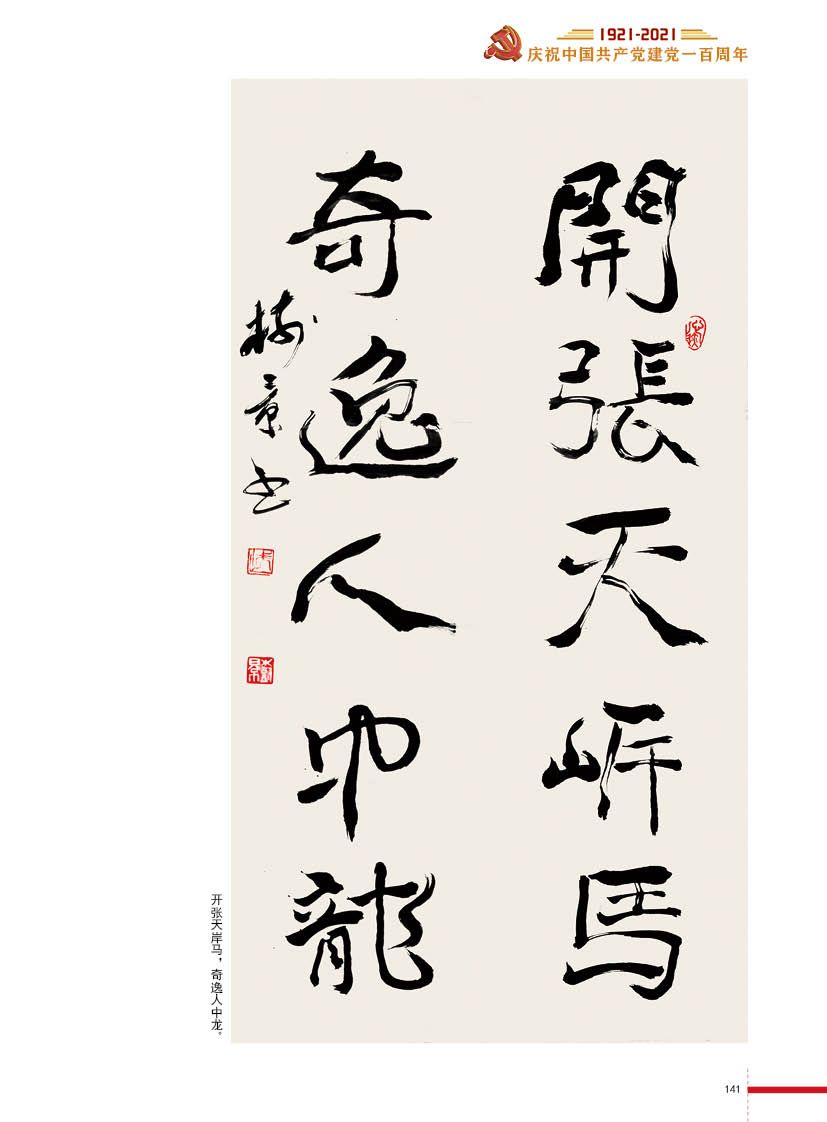 1921-2021
庆祝中国共产党建党一百周年
開張天岸馬
奇逸人中龍
樹景书
开张天岸马，奇逸人中龙。
141